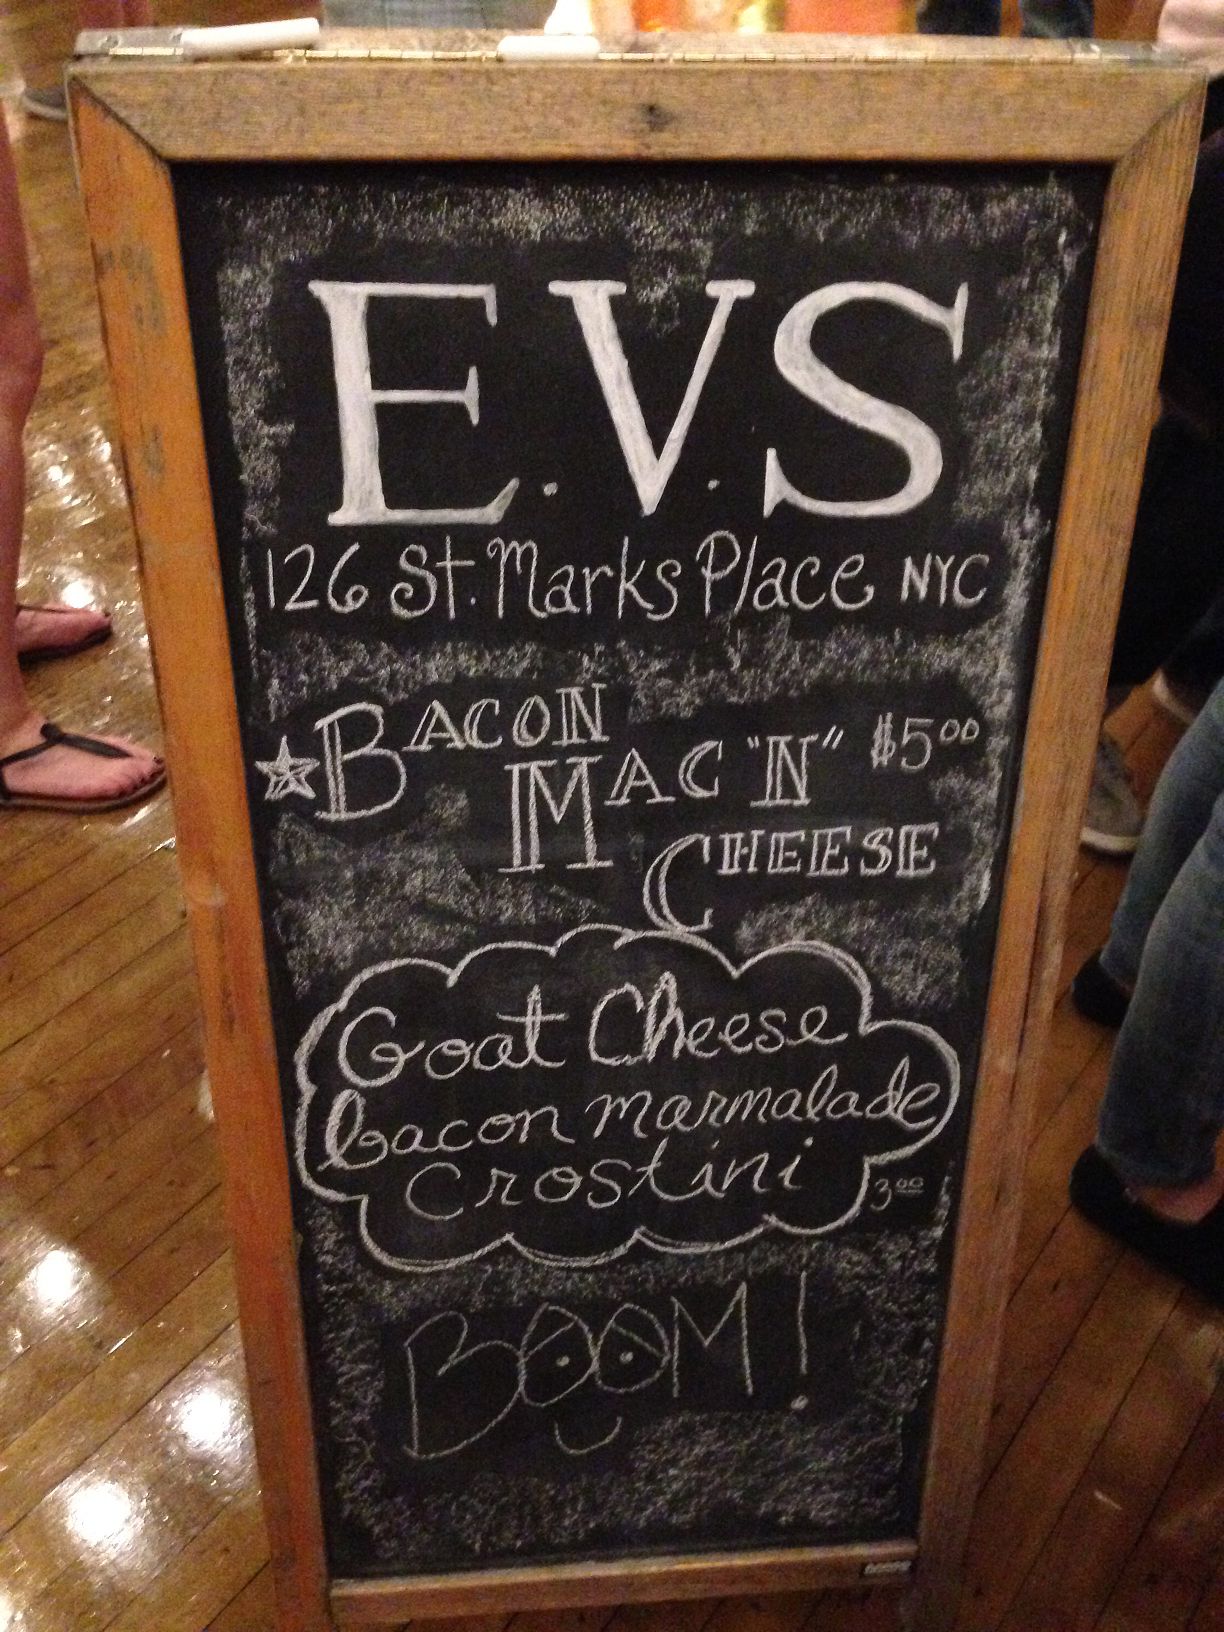 E.V.S
126 St. Marks Place NYC
BACON
MAC "N" $5.00
CHEESE
Goat Cheese
bacon marmalade
Crostini 3.00
BOOM!